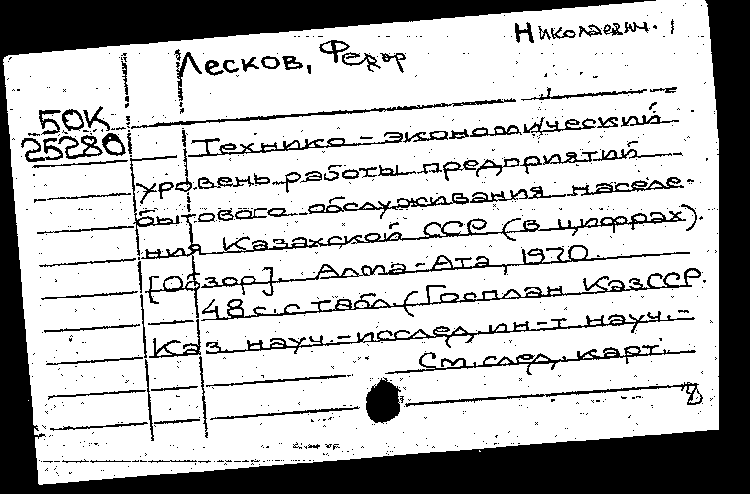 Лесков, Федор Николаевич.
50К
25280
Технико-экономический
уровень работы предприятий
бытового обслуживания населе-
ния Казахской ССР (в цифрах).
[Обзор]. Алма-Ата, 1970.
48 с. с табл. (Госплан КазССР.
Каз. науч.-исслед. ин-т науч.-
См. след. карт.